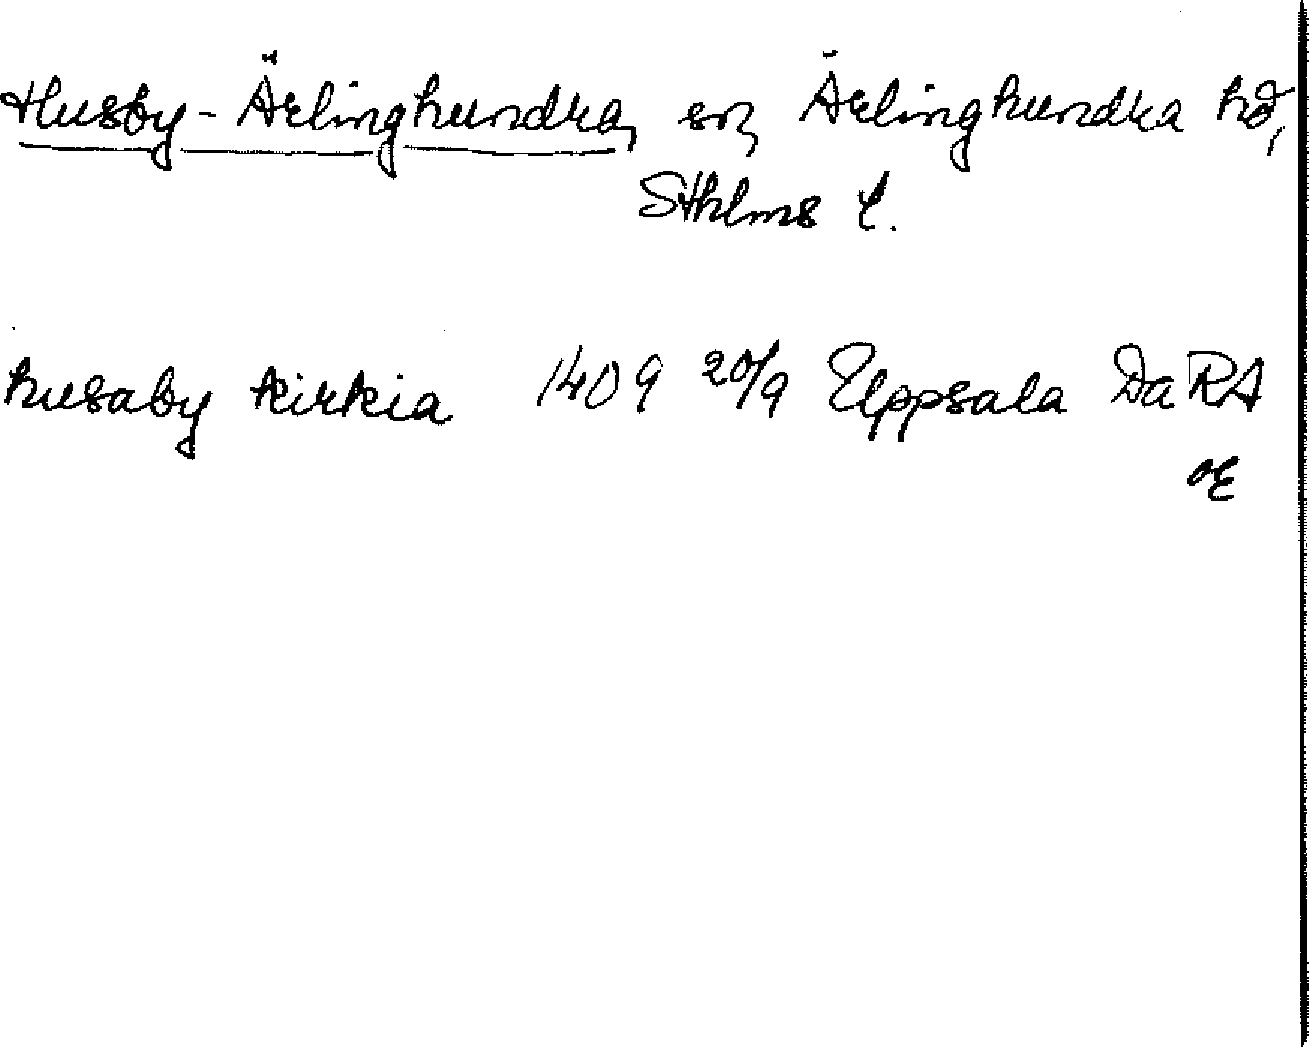 Husby-Ärlinghundra, sn, Ärlinghundra hd,
Sthlms l.
husaby kirkia 1409 20/9 Uppsala Da RA
or